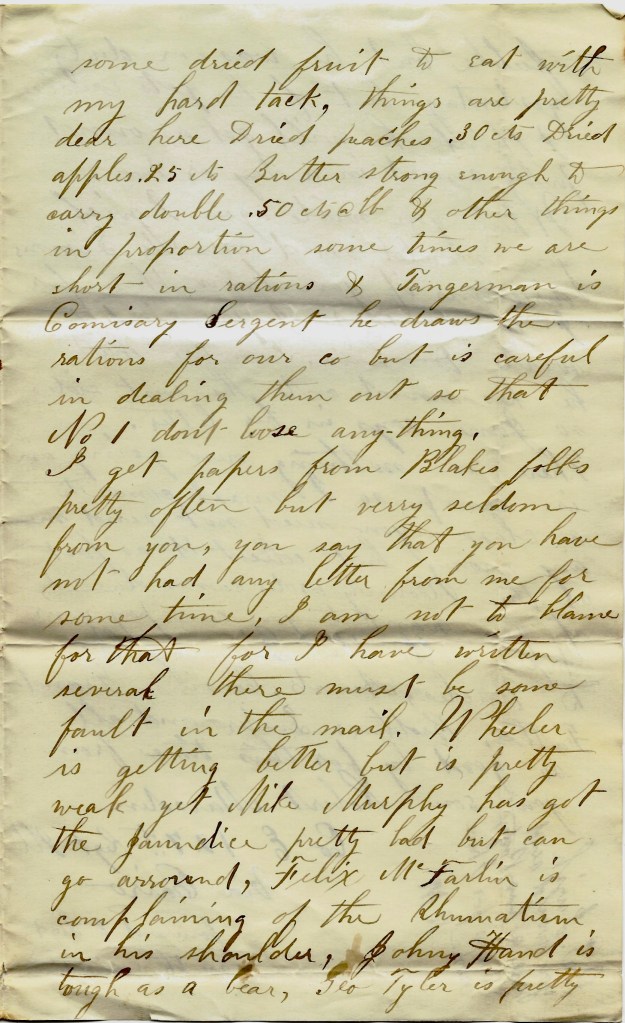 some dried fruit to eat with
my hard tack, things are pretty
dear here Dried peaches .30 cts Dried
apples .25 cts Butter strong enough to
carry double .50 cts @ lb & other things
in proportion some times we are
short in rations & Tangerman is
Comisary Sergent he draws the
rations for our co but is careful
in dealing them out so that
No 1 dont loose any-thing.
I get papers from Blakes folks
pretty often but verry seldom
from you, you say that you have
not had any letter from me for
some time, I am not to blame
for that for I have written
several there must be some
fault in the mail. Wheeler
is getting better but is pretty
weak yet Mike Murphy has got
the Jaundice pretty bad but can
go arround, Felix McFarlin is
complaining of the Rhumatism
in his shoulder, Johny Hand is
tough as a bear, Geo Tyler is pretty